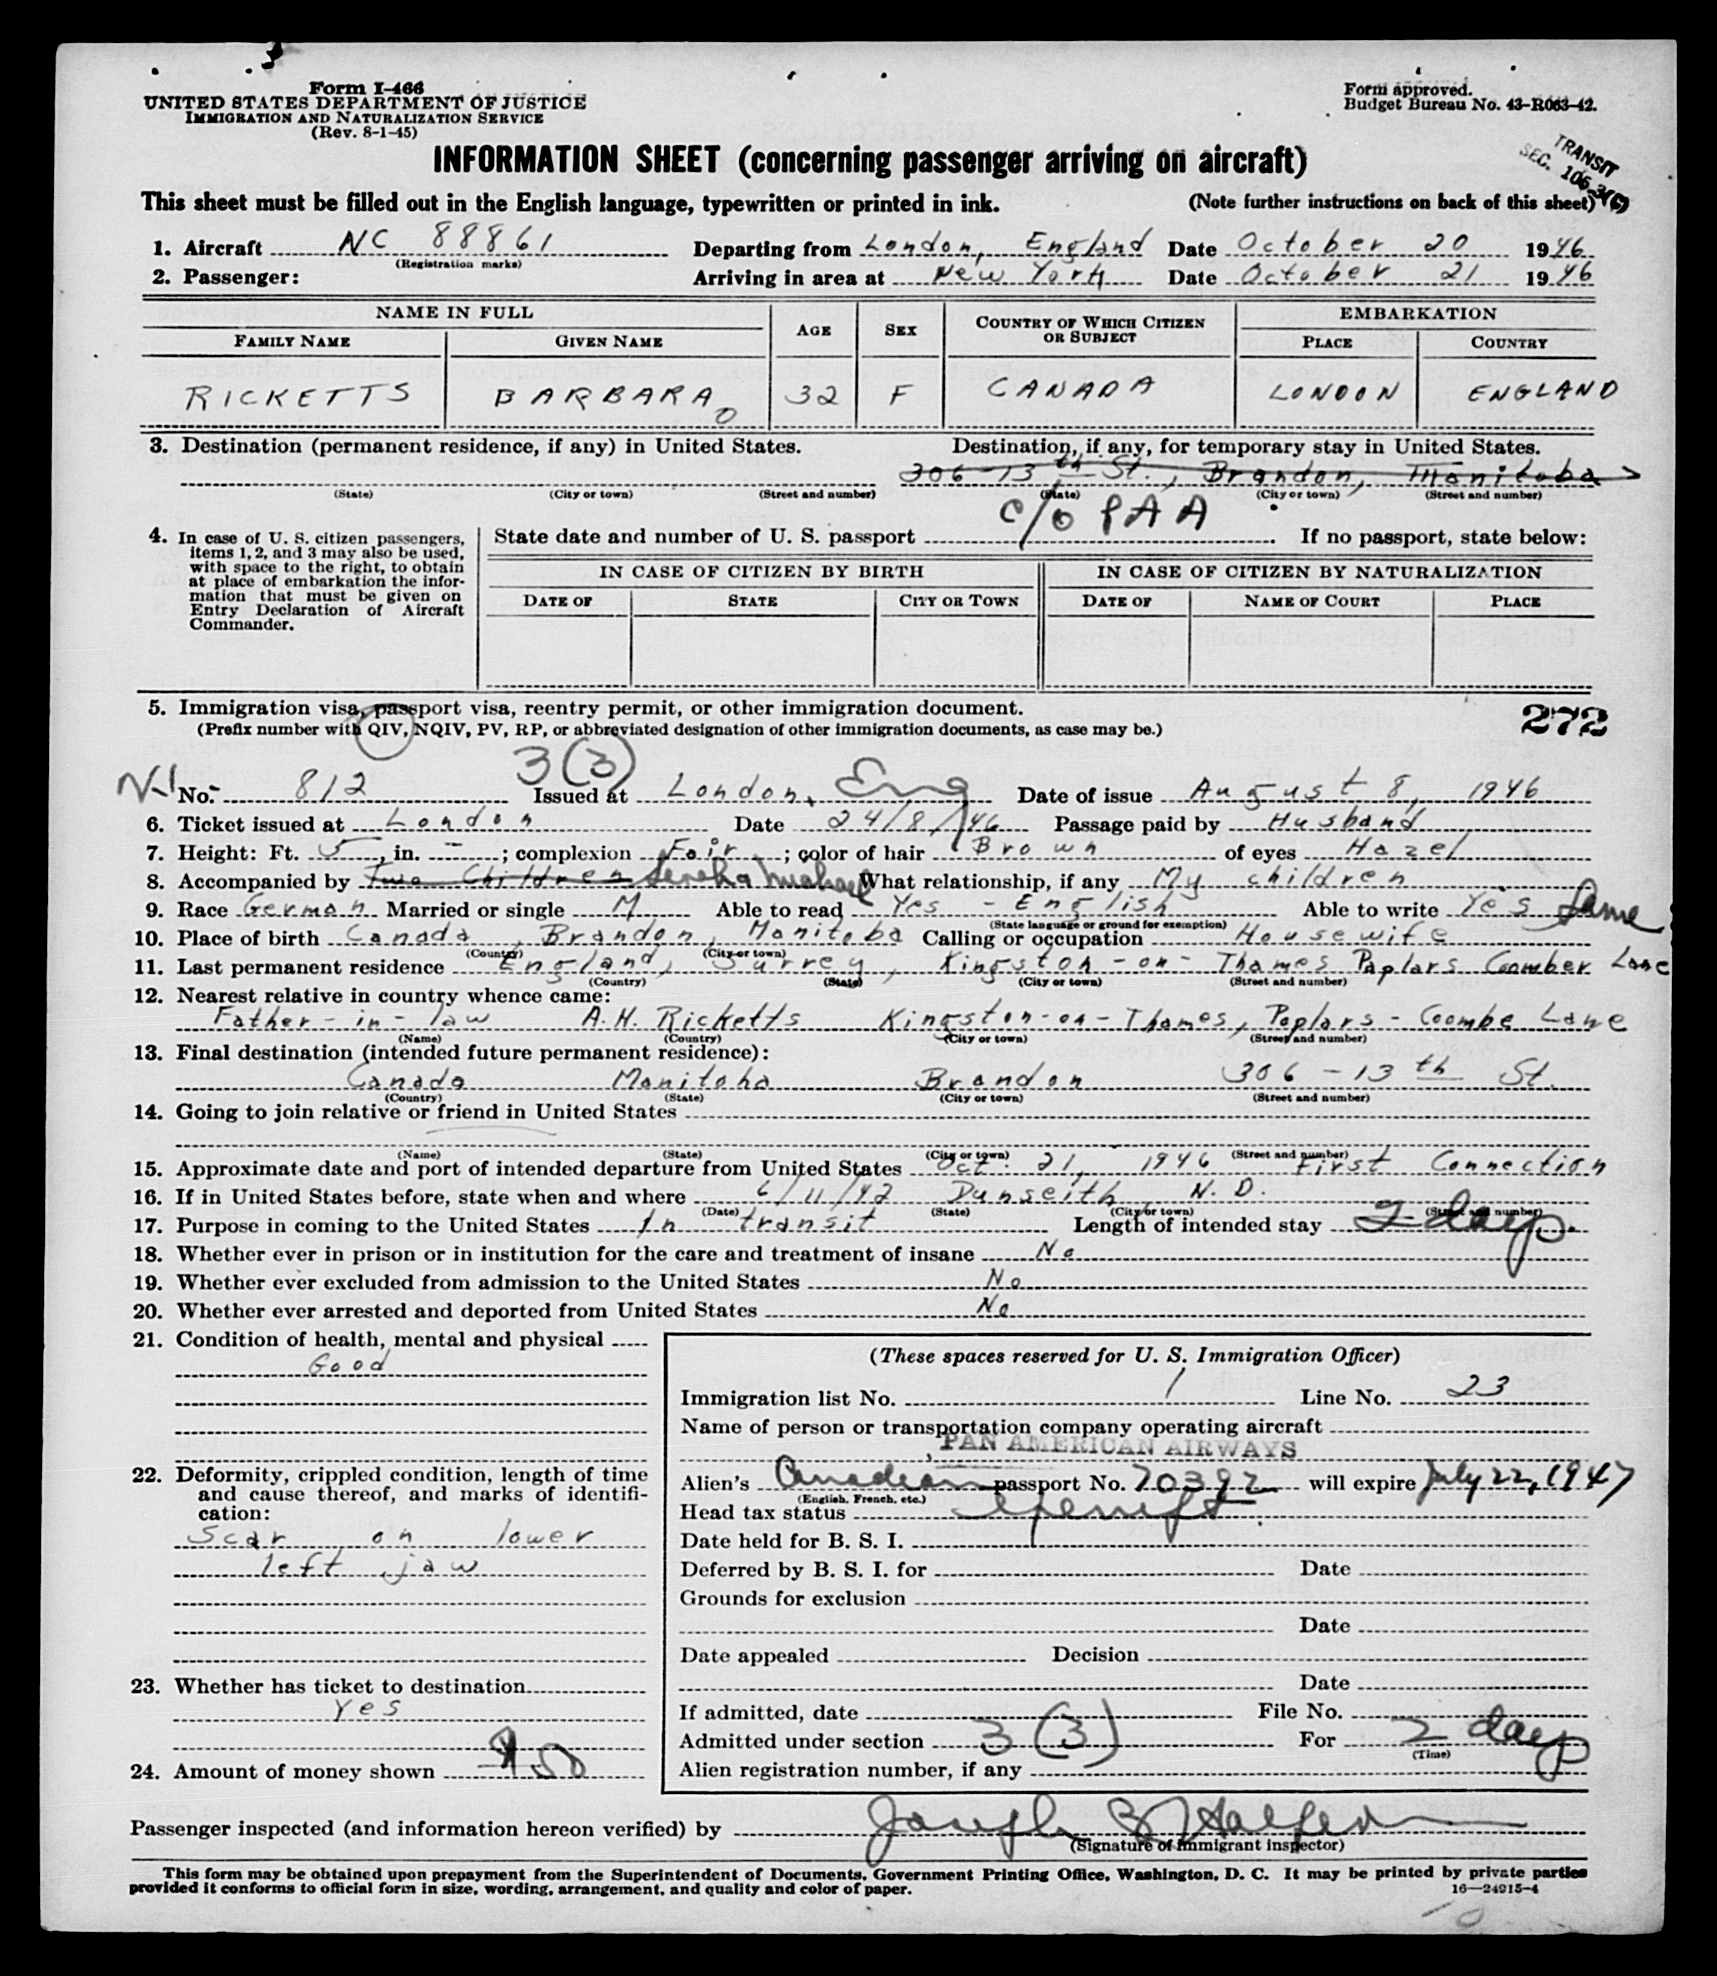 Form I-466
UNITED STATES DEPARTMENT OF JUSTICE
IMMIGRATION AND NATURALIZATION SERVICE
(Rev. 8-1-45)
Form approved.
Budget Bureau No. 43-R063-42.
TRANSIT
SEC. 105.3(5)
INFORMATION SHEET (concerning passenger arriving on aircraft)
This sheet must be filled out in the English language, typewritten or printed in ink. (Note further instructions on back of this sheet)
1. Aircraft NC 88861 Departing from London, England Date October 20 1946
(Registration marks)
2. Passenger: Arriving in area at New York Date October 21 1946
NAME IN FULL AGE SEX COUNTRY OF WHICH CITIZEN OR SUBJECT EMBARKATION
FAMILY NAME GIVEN NAME PLACE COUNTRY
RICKETTS BARBARA 32 F CANADA LONDON ENGLAND
3. Destination (permanent residence, if any) in United States. Destination, if any, for temporary stay in United States.
306-13th St., Brandon, Manitoba
(State) (City or town) (Street and number) (State) (City or town) (Street and number)
C/o PAA
4. In case of U. S. citizen passengers, items 1, 2, and 3 may also be used, with space to the right, to obtain at place of embarkation the information that must be given on Entry Declaration of Aircraft Commander.
State date and number of U. S. passport If no passport, state below:
IN CASE OF CITIZEN BY BIRTH IN CASE OF CITIZEN BY NATURALIZATION
DATE OF STATE CITY OR TOWN DATE OF NAME OF COURT PLACE
5. Immigration visa, passport visa, reentry permit, or other immigration document. 272
(Prefix number with QIV, NQIV, PV, RP, or abbreviated designation of other immigration documents, as case may be.)
3(3)
No. 812 Issued at London, Eng Date of issue August 8, 1946
6. Ticket issued at London Date 24/8/46 Passage paid by Husband
7. Height: Ft. 5, in. -; complexion Fair; color of hair Brown of eyes Hazel
8. Accompanied by Two Children Michael What relationship, if any My children
9. Race German Married or single M Able to read Yes - English Able to write Yes Same
(State language or ground for exemption)
10. Place of birth Canada, Brandon, Manitoba Calling or occupation Housewife
(Country) (City or town)
11. Last permanent residence England, Surrey, Kingston-on-Thames Poplars Coomber Lane
(Country) (State) (City or town) (Street and number)
12. Nearest relative in country whence came:
Father-in-law A.H. Ricketts Kingston-on-Thames, Poplars - Coombe Lane
(Name) (Country) (City or town) (Street and number)
13. Final destination (intended future permanent residence):
Canada Manitoba Brandon 306-13th St.
(Country) (State) (City or town) (Street and number)
14. Going to join relative or friend in United States
(Name) (State) (City or town) (Street and number)
15. Approximate date and port of intended departure from United States Oct. 21, 1946 First Connection
16. If in United States before, state when and where 6/11/42 Dunseith, N.D.
(Date) (State) (City or town) (Street and number)
17. Purpose in coming to the United States In transit Length of intended stay 2 days.
18. Whether ever in prison or in institution for the care and treatment of insane No
19. Whether ever excluded from admission to the United States No
20. Whether ever arrested and deported from United States No
21. Condition of health, mental and physical
Good
22. Deformity, crippled condition, length of time and cause thereof, and marks of identification:
Scar on lower
left jaw
23. Whether has ticket to destination
Yes
24. Amount of money shown $50
(These spaces reserved for U. S. Immigration Officer)
Immigration list No. 1 Line No. 23
Name of person or transportation company operating aircraft
PAN AMERICAN AIRWAYS
Alien's Canadian passport No. 70392 will expire July 22, 1947
(English, French, etc.)
Head tax status exempt
Date held for B. S. I.
Deferred by B. S. I. for Date
Grounds for exclusion
Date
Date appealed Decision
Date
If admitted, date File No.
Admitted under section 3(3) For 2 days
(Time)
Alien registration number, if any
Passenger inspected (and information hereon verified) by Joseph B. Halpern
(Signature of immigrant inspector)
This form may be obtained upon prepayment from the Superintendent of Documents, Government Printing Office, Washington, D. C. It may be printed by private parties
provided it conforms to official form in size, wording, arrangement, and quality and color of paper. 16—24915-4